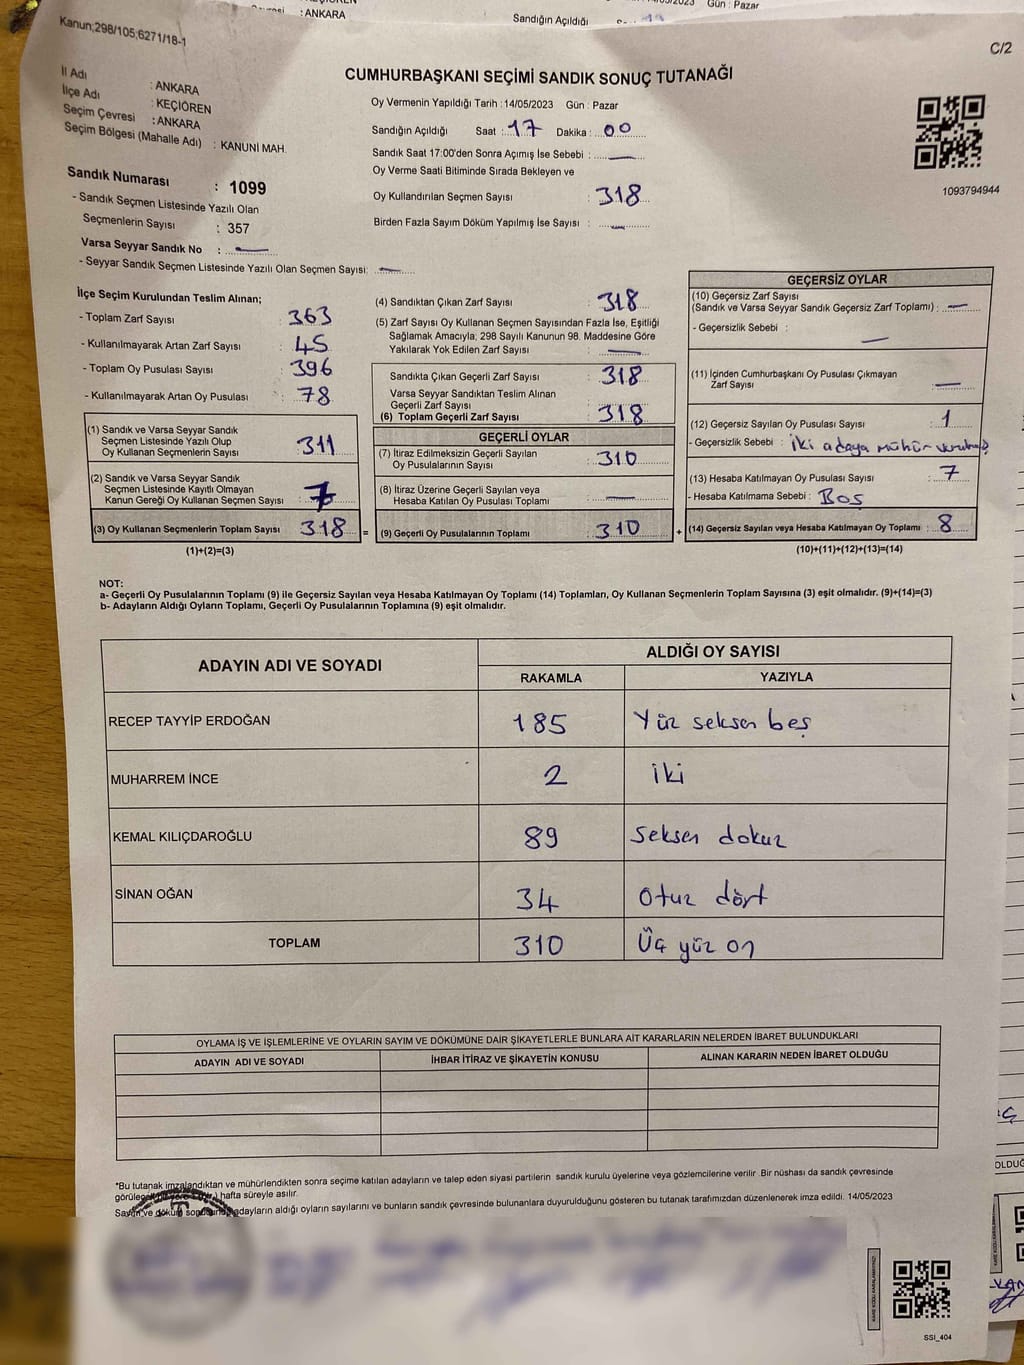 : ANKARA
Sandığın Açıldığı
Gün : Pazar
Kanun;298/105;6271/18-1
C/2
CUMHURBAŞKANI SEÇİMİ SANDIK SONUÇ TUTANAĞI
İl Adı : ANKARA
İlçe Adı : KEÇİÖREN
Seçim Çevresi : ANKARA
Seçim Bölgesi (Mahalle Adı) : KANUNİ MAH.
Oy Vermenin Yapıldığı Tarih : 14/05/2023 Gün : Pazar
Sandığın Açıldığı Saat : 17 Dakika : 00
Sandık Saat 17:00'den Sonra Açımış İse Sebebi : —
Oy Verme Saati Bitiminde Sırada Bekleyen ve
Oy Kullandırılan Seçmen Sayısı : 318
Birden Fazla Sayım Döküm Yapılmış İse Sayısı : —
1093794944
Sandık Numarası : 1099
- Sandık Seçmen Listesinde Yazılı Olan
Seçmenlerin Sayısı : 357
Varsa Seyyar Sandık No : —
- Seyyar Sandık Seçmen Listesinde Yazılı Olan Seçmen Sayısı: —
İlçe Seçim Kurulundan Teslim Alınan;
- Toplam Zarf Sayısı : 363
- Kullanılmayarak Artan Zarf Sayısı : 45
- Toplam Oy Pusulası Sayısı : 396
- Kullanılmayarak Artan Oy Pusulası : 78
(1) Sandık ve Varsa Seyyar Sandık
Seçmen Listesinde Yazılı Olup
Oy Kullanan Seçmenlerin Sayısı : 311
(2) Sandık ve Varsa Seyyar Sandık
Seçmen Listesinde Kayıtlı Olmayan
Kanun Gereği Oy Kullanan Seçmen Sayısı : 7
(3) Oy Kullanan Seçmenlerin Toplam Sayısı : 318 =
(1)+(2)=(3)
(4) Sandıktan Çıkan Zarf Sayısı : 318
(5) Zarf Sayısı Oy Kullanan Seçmen Sayısından Fazla İse, Eşitliği
Sağlamak Amacıyla, 298 Sayılı Kanunun 98. Maddesine Göre
Yakılarak Yok Edilen Zarf Sayısı : —
Sandıkta Çıkan Geçerli Zarf Sayısı : 318
Varsa Seyyar Sandıktan Teslim Alınan
Geçerli Zarf Sayısı
(6) Toplam Geçerli Zarf Sayısı : 318
GEÇERLİ OYLAR
(7) İtiraz Edilmeksizin Geçerli Sayılan
Oy Pusulalarının Sayısı : 310
(8) İtiraz Üzerine Geçerli Sayılan veya
Hesaba Katılan Oy Pusulası Toplamı : —
(9) Geçerli Oy Pusulalarının Toplamı : 310 +
GEÇERSİZ OYLAR
(10) Geçersiz Zarf Sayısı
(Sandık ve Varsa Seyyar Sandık Geçersiz Zarf Toplamı) : —
- Geçersizlik Sebebi : —
(11) İçinden Cumhurbaşkanı Oy Pusulası Çıkmayan
Zarf Sayısı : —
(12) Geçersiz Sayılan Oy Pusulası Sayısı : 1
- Geçersizlik Sebebi : iki adaya mühür
(13) Hesaba Katılmayan Oy Pusulası Sayısı : 7
- Hesaba Katılmama Sebebi : Boş
(14) Geçersiz Sayılan veya Hesaba Katılmayan Oy Toplamı : 8
(10)+(11)+(12)+(13)=(14)
NOT:
a- Geçerli Oy Pusulalarının Toplamı (9) ile Geçersiz Sayılan veya Hesaba Katılmayan Oy Toplamı (14) Toplamları, Oy Kullanan Seçmenlerin Toplam Sayısına (3) eşit olmalıdır. (9)+(14)=(3)
b- Adayların Aldığı Oyların Toplamı, Geçerli Oy Pusulalarının Toplamına (9) eşit olmalıdır.
ADAYIN ADI VE SOYADI
ALDIĞI OY SAYISI
RAKAMLA YAZIYLA
RECEP TAYYİP ERDOĞAN 185 Yüz seksen beş
MUHARREM İNCE 2 iki
KEMAL KILIÇDAROĞLU 89 Seksen dokuz
SİNAN OĞAN 34 Otuz dört
TOPLAM 310 Üç yüz on
OYLAMA İŞ VE İŞLEMLERİNE VE OYLARIN SAYIM VE DÖKÜMÜNE DAİR ŞİKAYETLERLE BUNLARA AİT KARARLARIN NELERDEN İBARET BULUNDUKLARI
ADAYIN ADI VE SOYADI İHBAR İTİRAZ VE ŞİKAYETİN KONUSU ALINAN KARARIN NEDEN İBARET OLDUĞU
*Bu tutanak imzalandıktan ve mühürlendikten sonra seçime katılan adayların ve talep eden siyasi partilerin sandık kurulu üyelerine veya gözlemcilerine verilir. Bir nüshası da sandık çevresinde
hafta süreyle asılır.
Sayım ve döküm sonucunda adayların aldığı oyların sayılarını ve bunların sandık çevresinde bulunanlara duyurulduğunu gösteren bu tutanak tarafımızdan düzenlenerek imza edildi. 14/05/2023
SSI_404